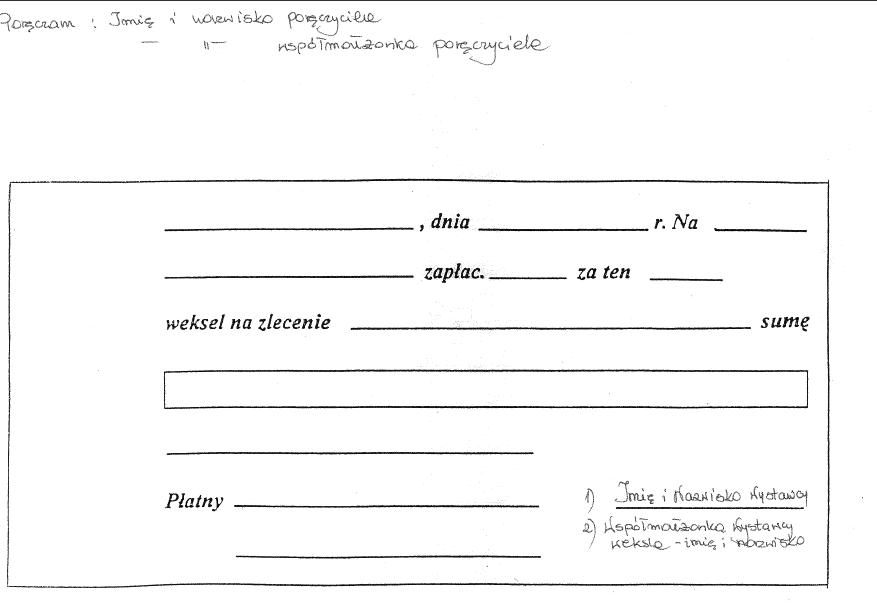 Poręczam : Imię i nazwisko poręczyciela
— " — współmałżonka poręczyciela
, dnia r. Na
zapłac. za ten
weksel na zlecenie sumę
Płatny
1) Imię i Nazwisko Wystawcy
2) Współmałżonka Wystawcy
weksla - imię i nazwisko